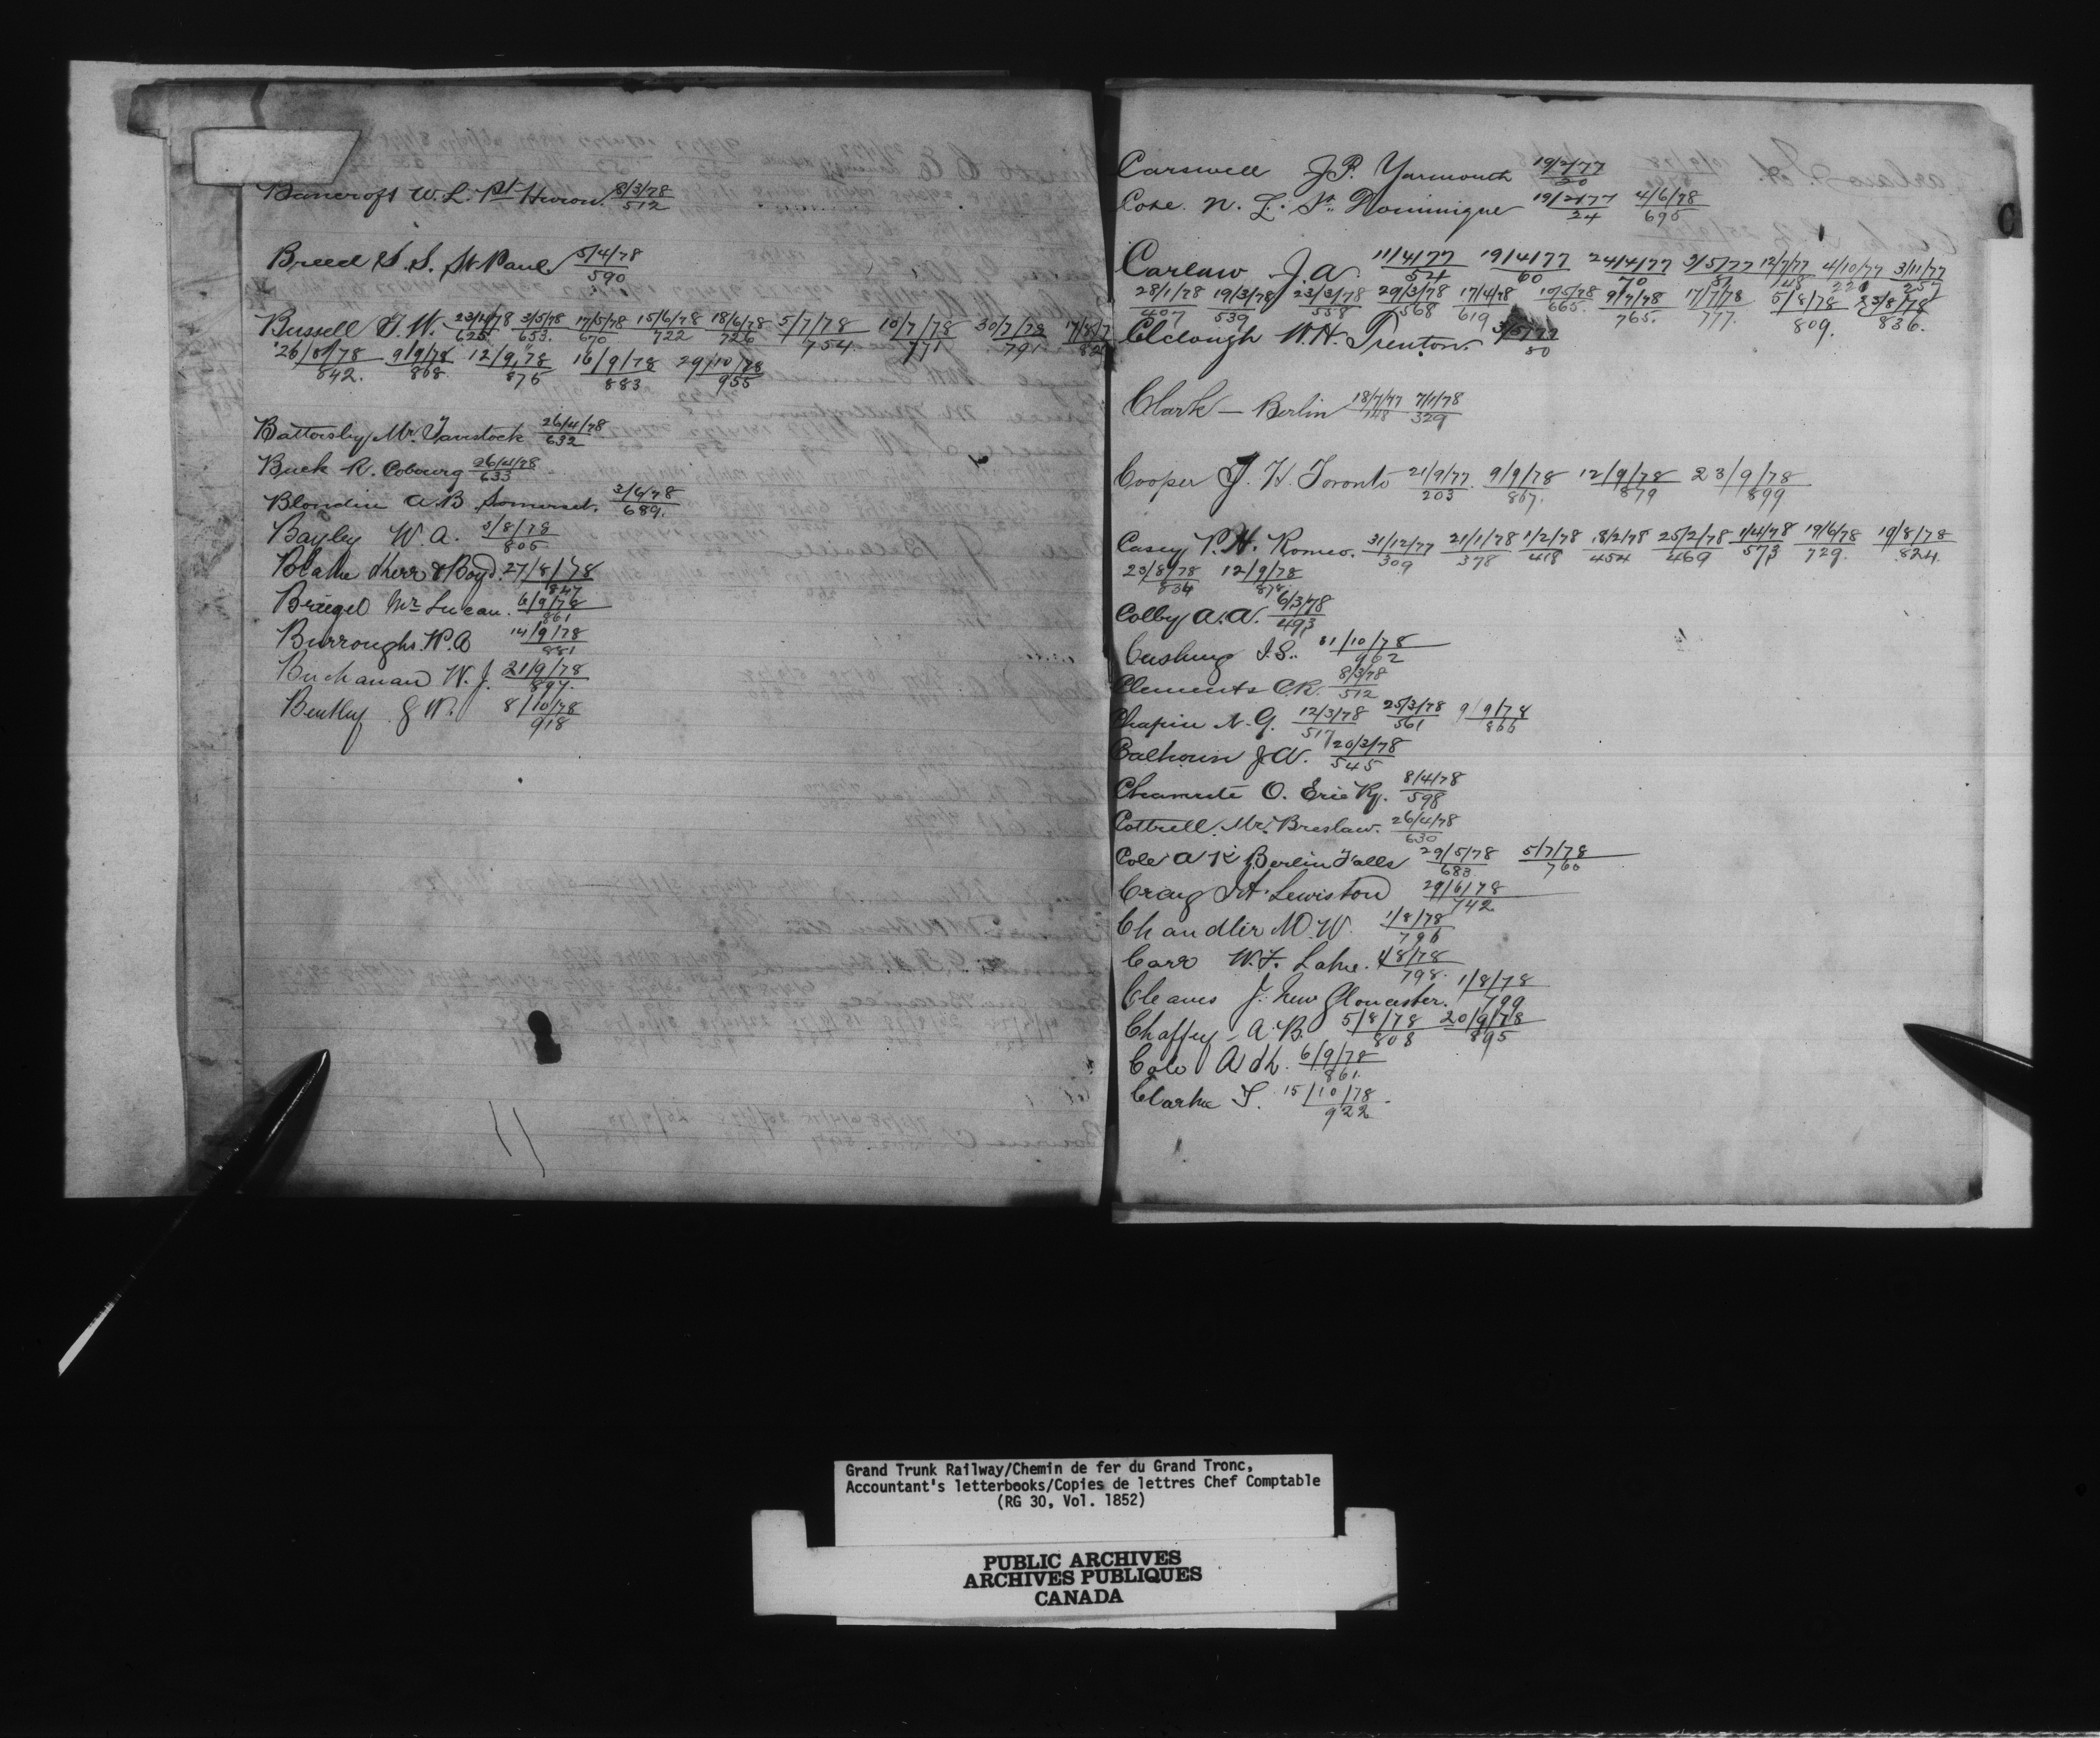 Bancroft W. L. Pt Huron. 8/3/78 512
Breed S. S. St Paul. 5/4/78 590
Bussell T. W. 23/4/78 625 3/5/78 653. 17/5/78 670 15/6/78 722 18/6/78 726 5/7/78 754. 10/7/78 771 30/7/78 791
26/8/78 842. 9/9/78 868. 12/9/78 876 16/9/78 883 29/10/78 955
Battersby Mr. Tavistock 26/4/78 632
Buck R. Cobourg 26/4/78 633
Blondin A. B Somerset. 3/6/78 689.
Bayley W. A. 5/8/78 805
Blake Kerr & Boyd. 27/8/78 847
Briegel Mr Lucan. 6/9/78 861
Burroughs. W. A 14/9/78 881
Buchanan W. J. 21/9/78 897.
Bentley G W. 8/10/78 918
C
Carswell J. P. Yarmouth 19/2/77 20
Cose. N. L. St. Dominique 19/2/77 24 4/6/78 695
Carlaw J. A. 11/4/77 54 19/4/77 60 24/4/77 70 3/5/77 12/7/77 148 4/10/77 220 3/11/77 257
28/1/78 407 19/3/78 539 23/3/78 558 29/3/78 568 17/4/78 619 665. 9/7/78 765. 17/7/78 777. 5/8/78 809. 23/8/78 836.
Clclough W. H. Trenton. 80
Clark — Berlin 18/7/77 148 7/1/78 329
Cooper J. H. Toronto 21/9/77 203. 9/9/78 867. 12/9/78 879 23/9/78 899
Casey P. H. Romeo. 31/12/77 309 21/1/78 378 1/2/78 418 18/2/78 454 25/2/78 469 1/4/78 573 19/6/78 729. 19/8/78 824.
23/8/78 834 12/9/78 878.
Colby A. A. 6/3/78 493
Cushing I. S.. 31/10/78 962
Clements C. R. 8/3/78 512
Chapin N. G. 12/3/78 517 25/3/78 561 9/9/78 866
Calhoun J. W. 20/3/78 545
Chanute O. Erie Ry. 8/4/78 598
Cottrell. Mr. Breslaw. 26/4/78 630
Cole A K Berlin Falls 29/5/78 683. 5/7/78 760
Craig J. A. Lewiston 29/6/78 742
Chandler M. W. 1/8/78 796
Carr W. F. Lake. 1/8/78 798.
Cleaves J. New Gloucester. 1/8/78 799
Chaffey A. B. 5/8/78 808 20/9/78 895
Cole A K. 6/9/78 861.
Clarke T. 15/10/78 922
Grand Trunk Railway/Chemin de fer du Grand Tronc,
Accountant's letterbooks/Copies de lettres Chef Comptable
(RG 30, Vol. 1852)
PUBLIC ARCHIVES
ARCHIVES PUBLIQUES
CANADA